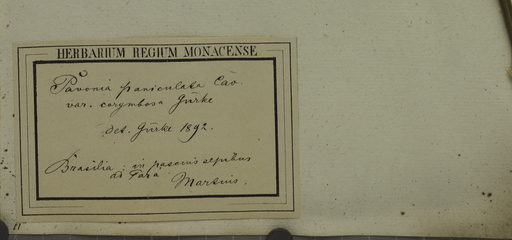 HERBARIUM REGIUM MONACENSE
Pavonia paniculata Cav.
var. corymbosa Gürke
det. Gürke 1892.
Brasilia: in pascuis sepibus
ad Para Martius.